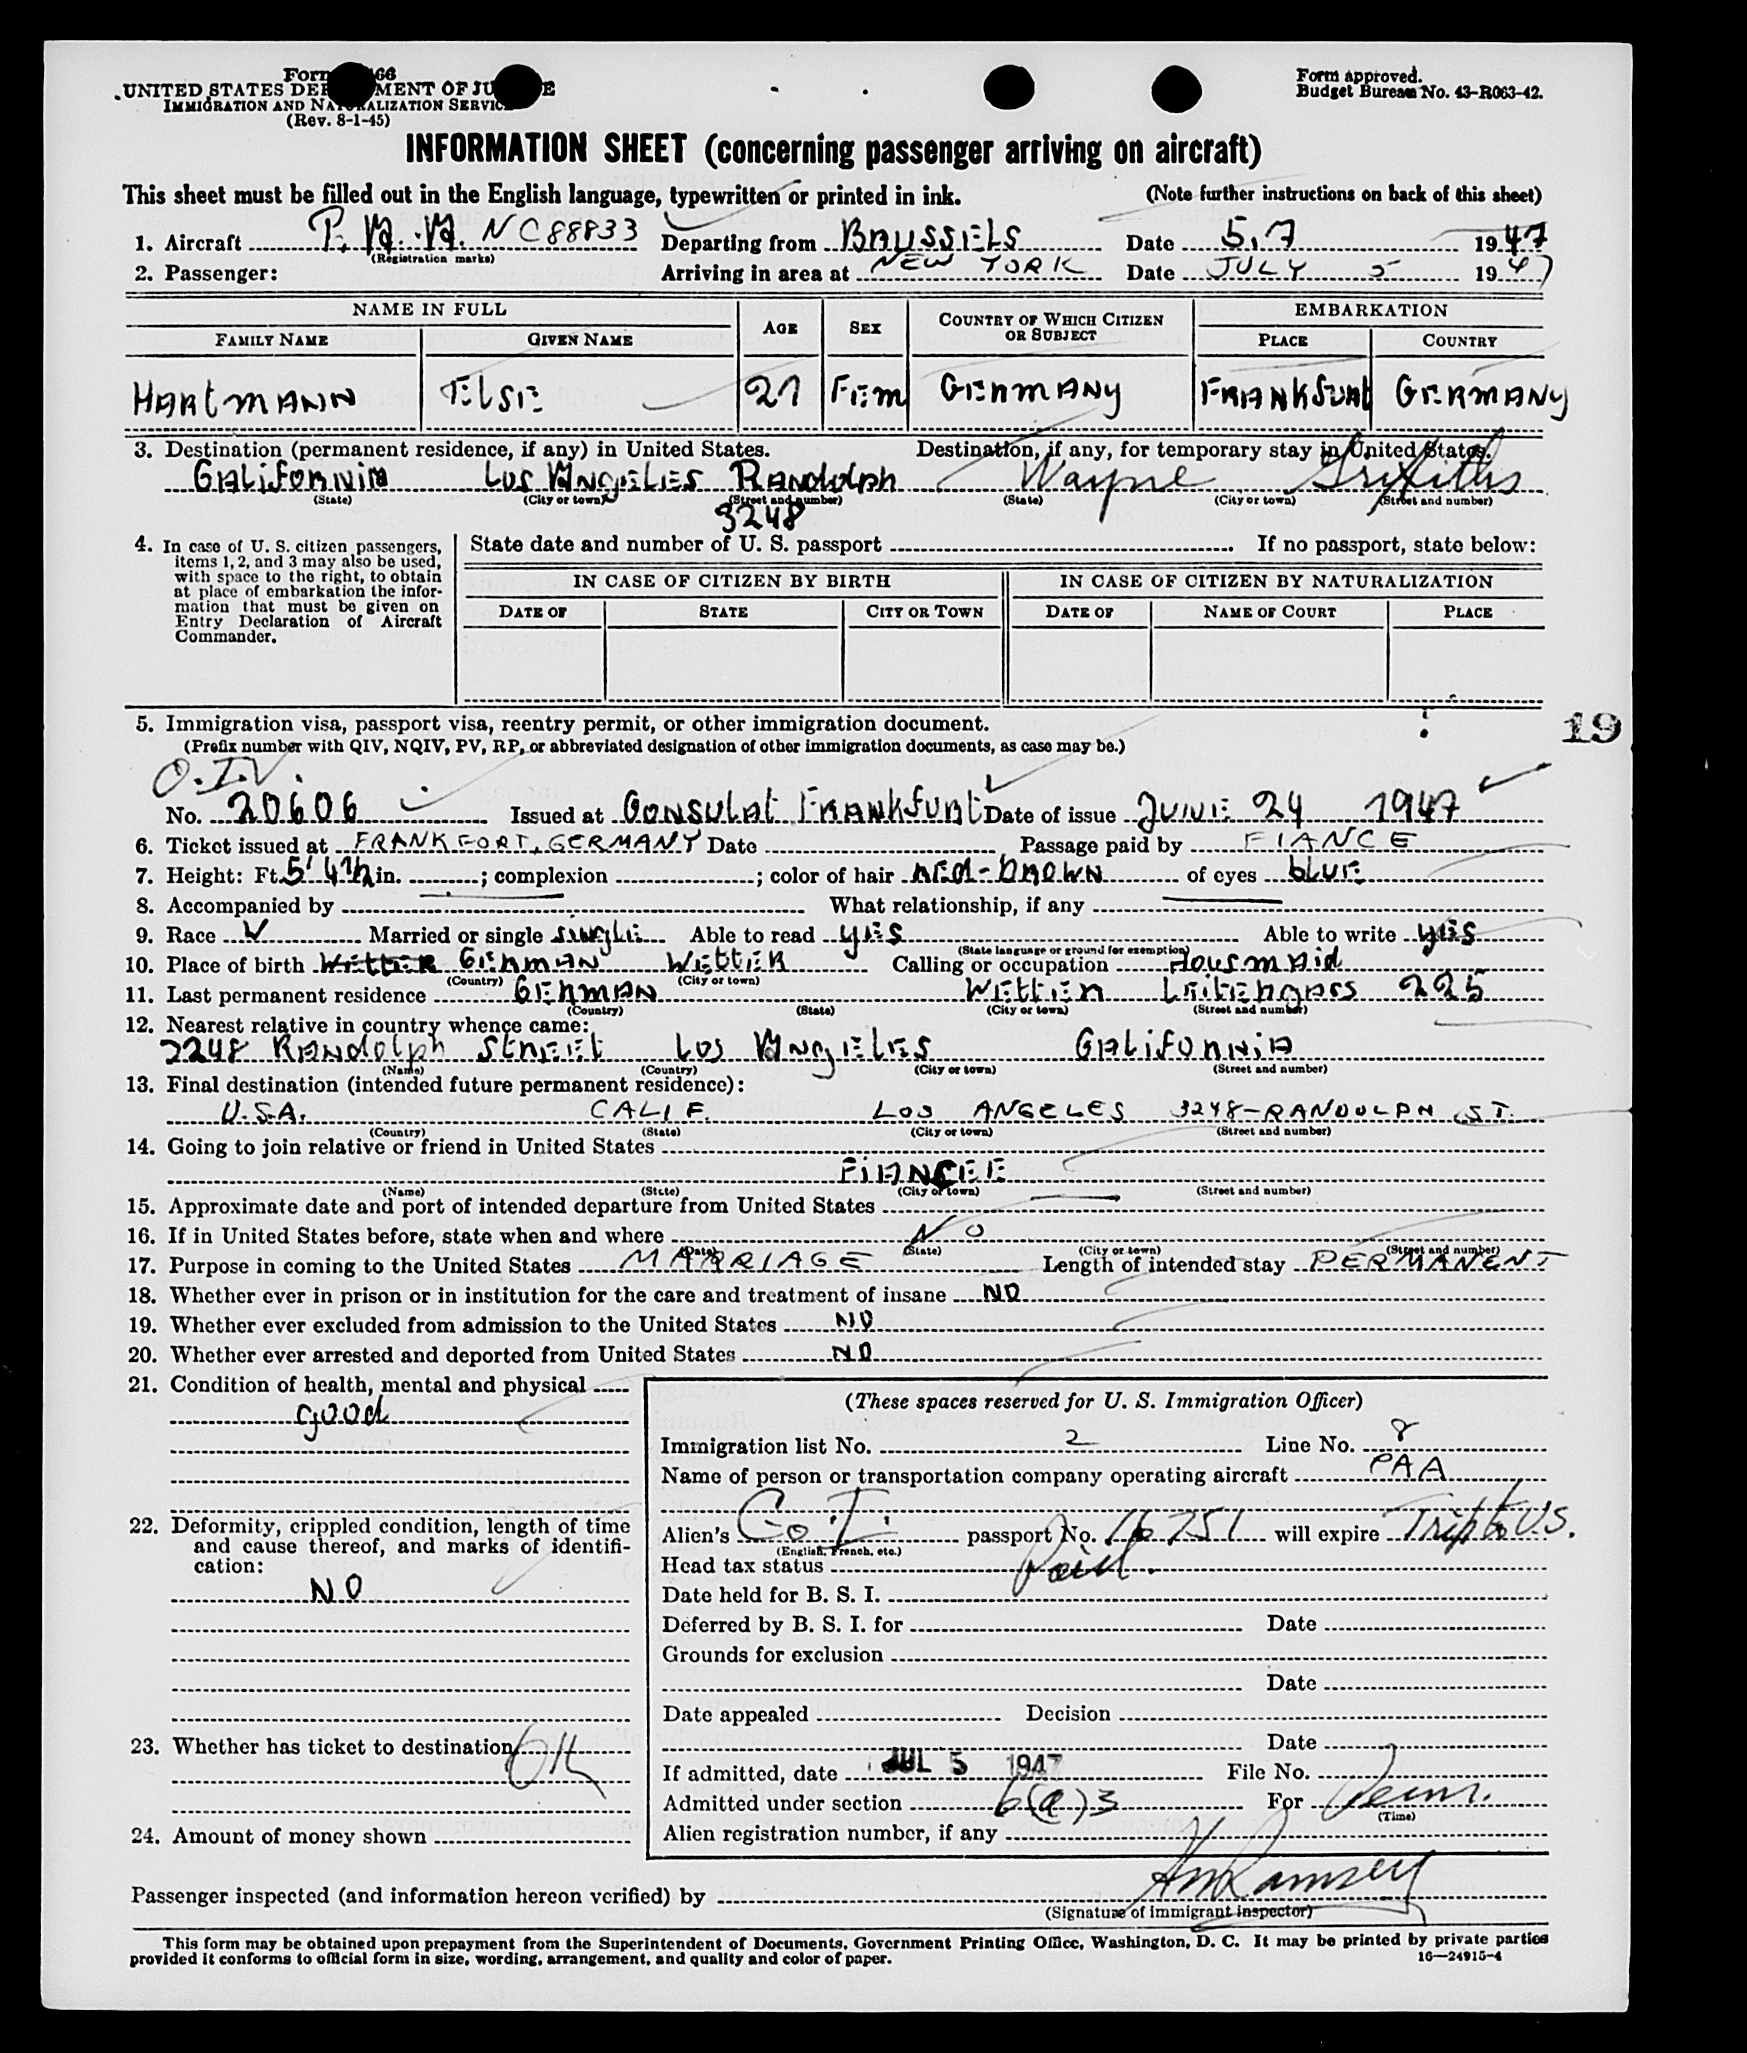 UNITED STATES DEPARTMENT OF JUSTICE
IMMIGRATION AND NATURALIZATION SERVICE
(Rev. 8-1-45)
Form approved.
Budget Bureau No. 43-R063-42.
INFORMATION SHEET (concerning passenger arriving on aircraft)
This sheet must be filled out in the English language, typewritten or printed in ink. (Note further instructions on back of this sheet)
1. Aircraft P. A. A. NC88833 Departing from BRUSSELS Date 5.7 1947
(Registration marks)
2. Passenger: Arriving in area at NEW YORK Date JULY 5 1947
NAME IN FULL AGE SEX COUNTRY OF WHICH CITIZEN OR SUBJECT EMBARKATION
FAMILY NAME GIVEN NAME PLACE COUNTRY
HARtmANN ELSE 27 FEm GERmANy FRANKfURt GERMANy
3. Destination (permanent residence, if any) in United States. Destination, if any, for temporary stay in United States.
CALifORNiA Los ANgELES RANdolph Wayne Griffiths
(State) (City or town) (Street and number) (State) (City or town) (Street and number)
3248
4. In case of U. S. citizen passengers, items 1, 2, and 3 may also be used, with space to the right, to obtain at place of embarkation the information that must be given on Entry Declaration of Aircraft Commander.
State date and number of U. S. passport If no passport, state below:
IN CASE OF CITIZEN BY BIRTH IN CASE OF CITIZEN BY NATURALIZATION
DATE OF STATE CITY OR TOWN DATE OF NAME OF COURT PLACE
5. Immigration visa, passport visa, reentry permit, or other immigration document.
(Prefix number with QIV, NQIV, PV, RP, or abbreviated designation of other immigration documents, as case may be.)
19
Q.I.V.
No. 20606 Issued at CONSULAt FRANKfURt Date of issue JUNE 24 1947
6. Ticket issued at FRANKFORT, GERMANY Date Passage paid by FIANCE
7. Height: Ft. 5' 4½ in. ; complexion ; color of hair REd-bROWN of eyes bLUE
8. Accompanied by What relationship, if any
9. Race W Married or single siNgLE Able to read yES Able to write yES
(State language or ground for exemption)
10. Place of birth WEttER GERmAN WEttER Calling or occupation HousmAid
(Country) (City or town)
11. Last permanent residence GERmAN WEttER LEitERgASS 225
(Country) (State) (City or town) (Street and number)
12. Nearest relative in country whence came:
3248 RANdolph StREEt Los ANgELES CALifORNiA
(Name) (Country) (City or town) (Street and number)
13. Final destination (intended future permanent residence):
U.S.A. CALIF. LOS ANGELES 3248-RANDOLPH ST.
(Country) (State) (City or town) (Street and number)
14. Going to join relative or friend in United States
FiANCEE
(Name) (State) (City or town) (Street and number)
15. Approximate date and port of intended departure from United States
16. If in United States before, state when and where NO
(Date) (State) (City or town) (Street and number)
17. Purpose in coming to the United States MARRIAGE Length of intended stay PERMANENT
18. Whether ever in prison or in institution for the care and treatment of insane NO
19. Whether ever excluded from admission to the United States NO
20. Whether ever arrested and deported from United States NO
21. Condition of health, mental and physical
good
22. Deformity, crippled condition, length of time and cause thereof, and marks of identification:
NO
23. Whether has ticket to destination OK
24. Amount of money shown
(These spaces reserved for U. S. Immigration Officer)
Immigration list No. 2 Line No. 8
Name of person or transportation company operating aircraft PAA
Alien's C. of I. passport No. 16751 will expire Trip to US.
(English, French, etc.)
Head tax status Paid.
Date held for B. S. I.
Deferred by B. S. I. for Date
Grounds for exclusion
Date
Date appealed Decision
Date
If admitted, date JUL 5 1947 File No.
Admitted under section 6(a)3 For Perm.
(Time)
Alien registration number, if any
Passenger inspected (and information hereon verified) by Ramsey
(Signature of immigrant inspector)
This form may be obtained upon prepayment from the Superintendent of Documents, Government Printing Office, Washington, D. C. It may be printed by private parties
provided it conforms to official form in size, wording, arrangement, and quality and color of paper. 16—24915-4